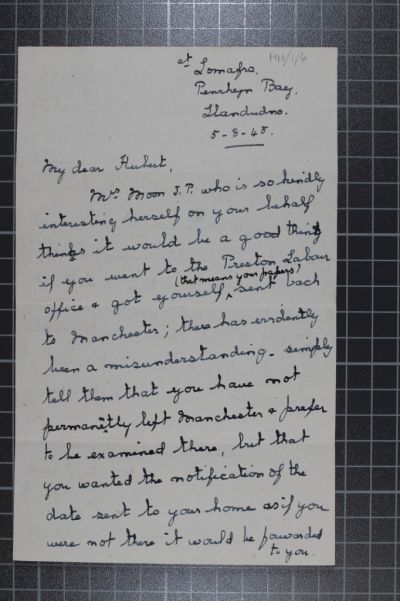 HH/1/4
at Lomafra,
Penrhyn Bay,
Llandudno.
5-8-45.
My dear Hubert,
Mrs. Moon J.P. who is so kindly
interesting herself on your behalf
thinks it would be a good thing
if you went to the Preston Labour
(that means your papers)
office & got yourself, sent back
to Manchester; there has evidently
been a misunderstanding - simply
tell them that you have not
permanently left Manchester & prefer
to be examined there, but that
you wanted the notification of the
date sent to your home as if you
were not there it would be forwarded
to you.